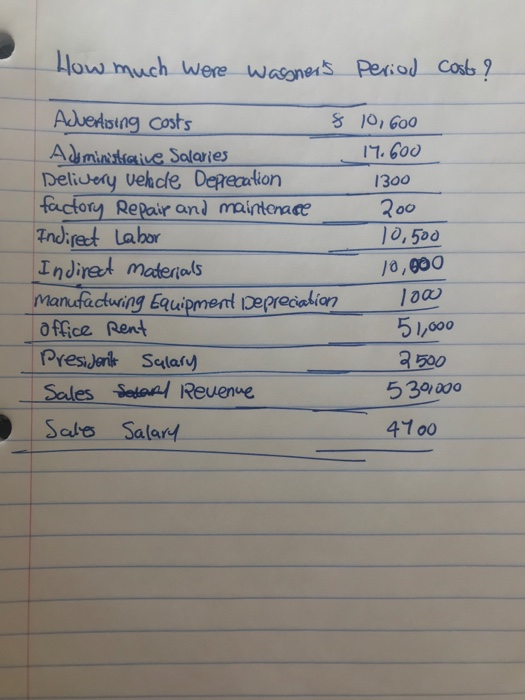 How much were wagner's Period costs?
Advertising costs $ 10,600
Administraive Salaries 17.600
Delivery vehicle Deprecation 1300
factory Repair and maintenace 200
Indirect Labor 10,500
Indirect materials 10,000
manufacturing Equipment Depreciation 1000
office Rent 51,000
President Salary 2500
Sales Revenue 530,000
Sales Salary 4700